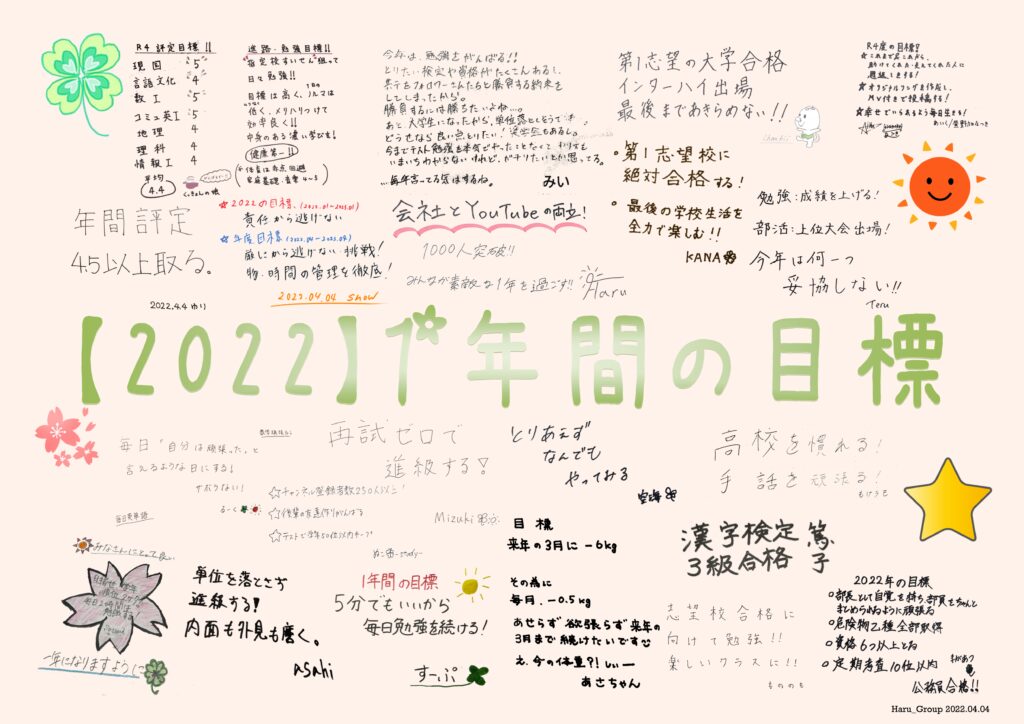 R4 評定目標!!
現国 5
言語文化 4
数I 5
コミュ英I 5
地理 4
理科 4
情報I 5
平均
4.4
進路・勉強目標!!
指定校すいせん狙って
日々勉強!!
目標は高く、ノルマは
低く、メリハリつけて
効率良く!!
中身のある濃い学びを!
健康第一!!
今年は、勉強をがんばる!!
とりたい検定や資格がたくさんあるし、
勝負するには勝ちたいよね…。
あと、大学生になったから、単位落としそうで
どうせなら良い点とりたい!奨学金もあるし。
…毎年言ってる気はするね。
みい
第1志望の大学合格
インターハイ出場
最後まであきらめない!!
R4年度の目標?
オリジナルソングを作成し、
MV付きで投稿する!
幸せでいられるよう毎日生きる!
・第1志望校に
絶対合格する!
・最後の学校生活を
全力で楽しむ!!
KANA
勉強:成績を上げる!
部活:上位大会出場!
今年は何一つ
妥協しない!!
Teru
年間評定
4.5以上取る。
2022.4.4 ゆり
☆2022の目標、(2022.01〜2023.01)
責任から逃げない
☆年度目標(2022.04〜2023.04)
嫌だから逃げない・挑戦!
物・時間の管理を徹底!
2022.04.04 show
会社とYouTubeの両立!
1000人突破!!
みんなが素敵な1年を過ごす!!
Haru
【2022】1年間の目標
毎日"自分は頑張った。"と
言えるような日にする!
サボらない!
るーく
再試ゼロで
進級する!
Mizuki
☆チャンネル登録者数250人以上!
☆授業の予週作りがんばる
☆テストで学年50位以内キープ
とりあえず
なんでも
やってみる
高校を慣れる!
手話を頑張る!
漢字検定
3級合格
篤子
毎日英単語
みなさんにとって良い
一年になりますように
単位を落とさず
進級する!
内面も外見も磨く。
asahi
1年間の目標
5分でもいいから
毎日勉強を続ける!
すーぷ
目標
来年の3月に -6kg
その為に
毎月. -0.5kg
あせらず欲張らず来年の
3月まで続けたいです
え.今の体重?!しぃー
あさちゃん
志望校合格に
向けて勉強!!
楽しいクラスに!!
もののも
2022年の目標
○部長として自覚を持ち、部員をちゃんと
まとめられるように頑張る
○危険物乙種全部取得
○資格6つ以上とる
○定期考査10位以内
公務員合格!!
Haru_Group 2022.04.04